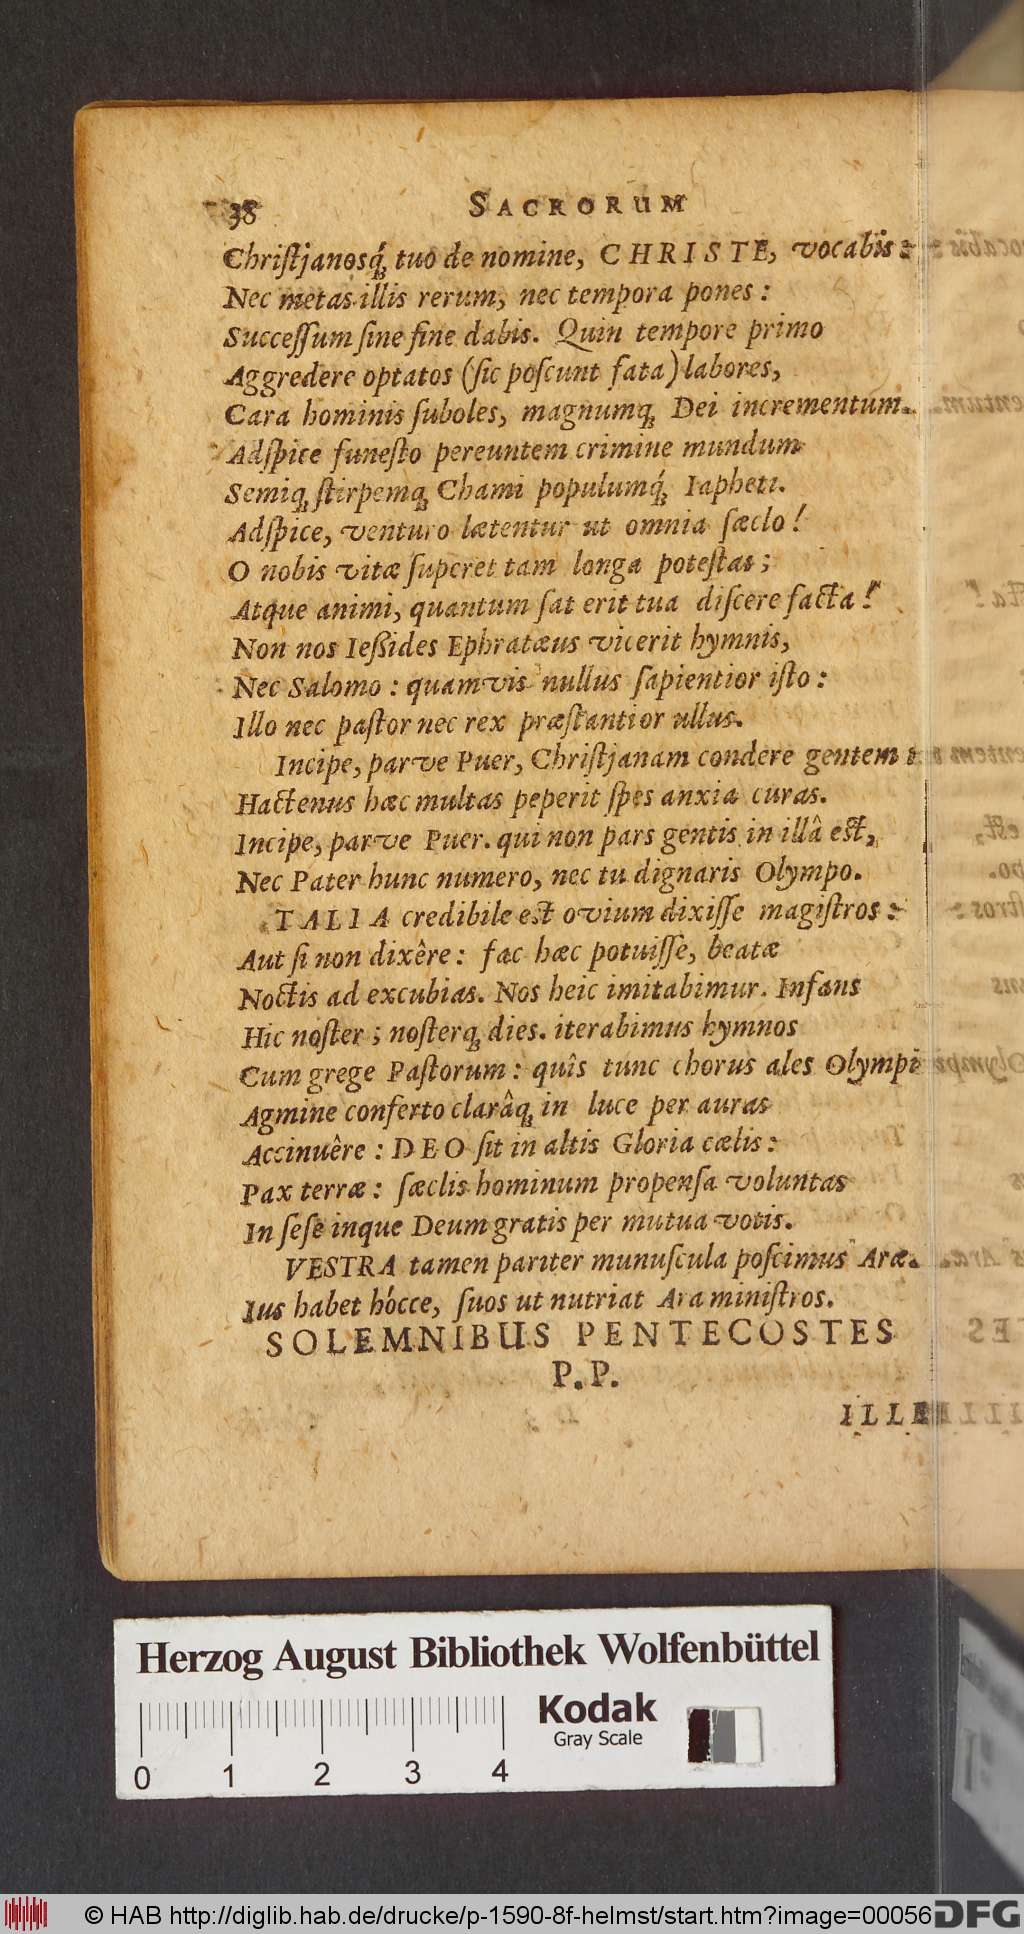 38 SACRORUM
Chriſtjanosq́ꝫ tuo de nomine, CHRISTE, vocabis:
Nec metas illis rerum, nec tempora pones:
Succeſſum ſine fine dabis. Quin tempore primo
Aggredere optatos (ſic poſcunt fata) labores,
Cara hominis ſuboles, magnumqꝫ Dei incrementum.
Adſpice funeſto pereuntem crimine mundum
Semiqꝫ ſtirpemqꝫ Chami populumq́ꝫ Iapheti.
Adſpice, venturo lætentur ut omnia ſæclo!
O nobis vitæ ſuperet tam longa poteſtas;
Atque animi, quantum ſat erit tua diſcere facta!
Non nos Ießides Ephratæus vicerit hymnis,
Nec Salomo: quamvis nullus ſapientior iſto:
Illo nec paſtor nec rex præſtantior ullus.
Incipe, parve Puer, Chriſtjanam condere gentem:
Hactenus hæc multas peperit ſpes anxia curas.
Incipe, parve Puer. qui non pars gentis in illâ eſt,
Nec Pater hunc numero, nec tu dignaris Olympo.
TALIA credibile eſt ovium dixiſſe magiſtros:
Aut ſi non dixêre: fac hæc potuiſſe, beatæ
Noctis ad excubias. Nos heic imitabimur. Infans
Hic noſter; noſterqꝫ dies. iterabimus hymnos
Cum grege Paſtorum: quîs tunc chorus ales Olympi
Agmine conferto clarâqꝫ in luce per auras
Accinuêre: DEO ſit in altis Gloria cælis:
Pax terræ: ſæclis hominum propenſa voluntas
In ſeſe inque Deum gratis per mutua votis.
VESTRA tamen pariter munuſcula poſcimus Aræ.
Ius habet hócce, ſuos ut nutriat Ara miniſtros.
SOLEMNIBUS PENTECOSTES
P.P.
ILLE
Herzog August Bibliothek Wolfenbüttel
Kodak
Gray Scale
0 1 2 3 4
© HAB http://diglib.hab.de/drucke/p-1590-8f-helmst/start.htm?image=00056 DFG